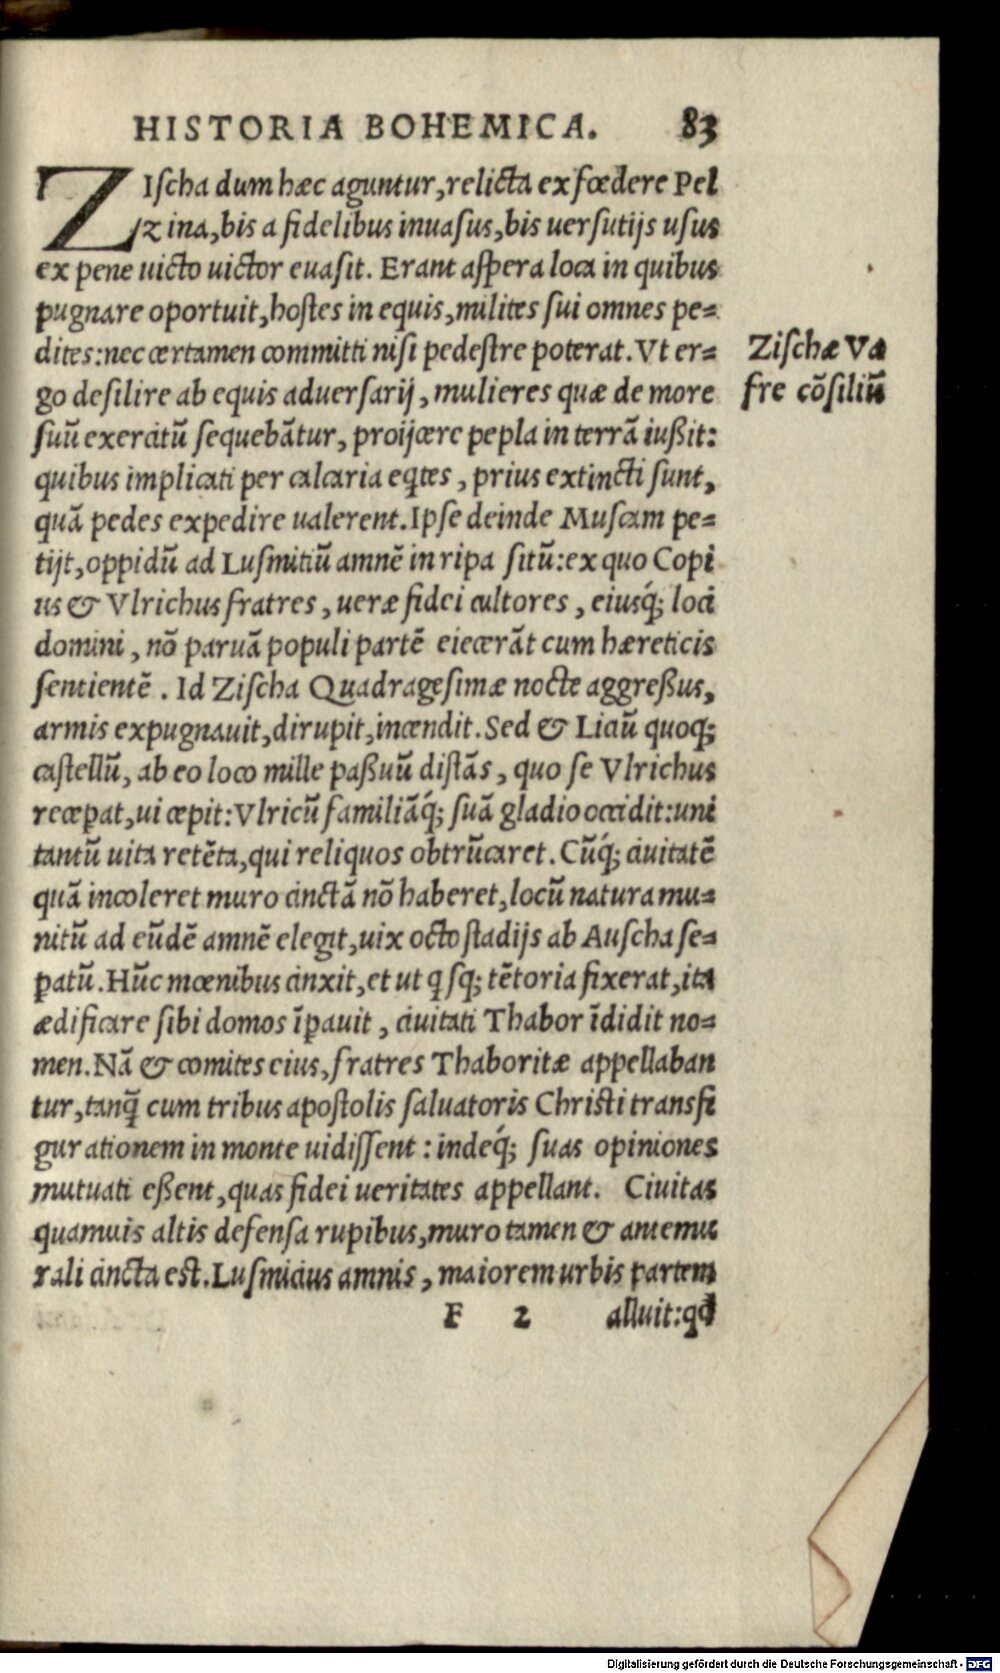 HISTORIA BOHEMICA. 83
ZIscha dum hæc aguntur, relicta ex fœdere Pel
zina, bis a fidelibus inuasus, bis uersutijs usus
ex pene uicto uictor euasit. Erant aspera loca in quibus
pugnare oportuit, hostes in equis, milites sui omnes pe=
dites: nec certamen committi nisi pedestre poterat. Vt er=
go desilire ab equis aduersarij, mulieres quæ de more
suũ exercitũ sequebãtur, proijcere pepla in terrã iußit:
quibus implicati per calcaria eq̃tes, prius extincti sunt,
quã pedes expedire ualerent. Ipse deinde Muscam pe=
tijt, oppidũ ad Lusmitiũ amnẽ in ripa sitũ: ex quo Copi
us & Vlrichus fratres, ueræ fidei cultores, eiusq́; loci
domini, nõ paruã populi partẽ eiecerãt cum hæreticis
sentientẽ. Id Zischa Quadragesimæ nocte aggreßus,
armis expugnauit, dirupit, incendit. Sed & Liciũ quoq;
castellũ, ab eo loco mille paßuũ distãs, quo se Vlrichus
recep̱at, ui cepit: Vlricũ familiãq́; suã gladio occidit: uni
tantũ uita retẽta, qui reliquos obtrũcaret. Cũq́; ciuitatẽ
quã incoleret muro cinctã nõ haberet, locũ natura mu=
nitũ ad eũdẽ amnẽ elegit, uix octo stadijs ab Auscha se=
p̱atũ. Hũc mœnibus cinxit, et ut q̃sq; tẽtoria fixerat, ita
ædificare sibi domos ĩp̱auit, ciuitati Thabor ĩdidit no=
men. Nã & comites eius, fratres Thaboritæ appellaban
tur, tanq̃ cum tribus apostolis saluatoris Christi transfi
gurationem in monte uidissent: indeq́; suas opiniones
mutuati eßent, quas fidei ueritates appellant. Ciuitas
quamuis altis defensa rupibus, muro tamen & antemu
rali cincta est. Lusmicius amnis, maiorem urbis partem
F 2 alluit: qđ
Zischæ Va
fre cõsiliũ
Digitalisierung gefördert durch die Deutsche Forschungsgemeinschaft - DFG